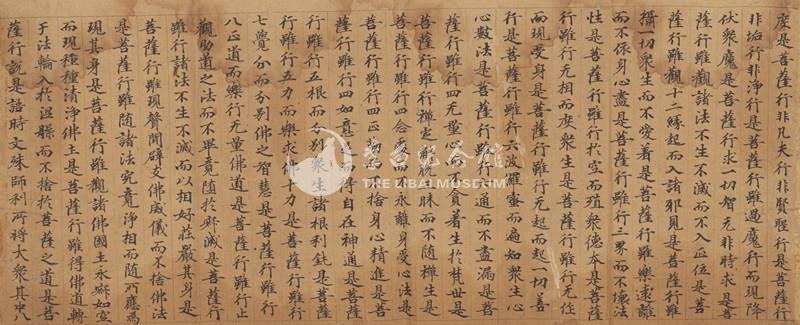 度是菩薩行非凡夫行非賢聖行是菩薩行
非垢行非淨行是菩薩行雖過魔行而現降
伏衆魔是菩薩行求一切智无非時求是菩
薩行雖觀諸法不生不滅而不入正位是菩
薩行雖觀十二緣起而入諸邪見是菩薩行雖
攝一切衆生而不愛著是菩薩行雖樂遠離
而不依身心盡是菩薩行雖行三界而不壞法
性是菩薩行雖行於空而殖衆德本是菩薩
行雖行无相而度衆生是菩薩行雖行无作
而現受身是菩薩行雖行无起而起一切善
行是菩薩行雖行六波羅蜜而遍知衆生心
心數法是菩薩行雖行六通而不盡漏是菩
薩行雖行四无量心而不貪著生於梵世是
菩薩行雖行禪定解脫三昧而不隨禪生是
菩薩行雖行四念處而不永離身受心法是
菩薩行雖行四正勤而不捨身心精進是菩
薩行雖行四如意足而得自在神通是菩薩
行雖行五根而分別衆生諸根利鈍是菩薩
行雖行五力而樂求佛十力是菩薩行雖行
七覺分而分別佛之智慧是菩薩行雖行
八正道而樂行无量佛道是菩薩行雖行止
觀助道之法而不畢竟隨於寂滅是菩薩行
雖行諸法不生不滅而以相好莊嚴其身是
菩薩行雖現聲聞辟支佛威儀而不捨佛法
是菩薩行雖隨諸法究竟淨相而隨所應為
現其身是菩薩行雖觀諸佛國土永寂如空
而現種種清淨佛土是菩薩行雖得佛道轉
于法輪入於涅槃而不捨於菩薩之道是菩
薩行說是語時文殊師利所將大衆其中八
THE LIBAI MUSEUM